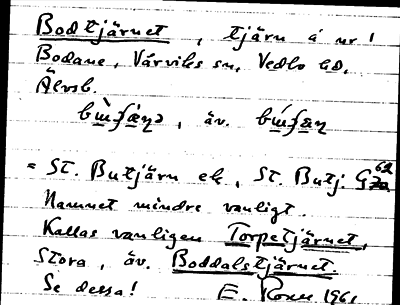 Bodtjärnet, tjärn å nr 1
Bodane, Värviks sn, Vedbo hd,
Älvsb.
äv.
= St. Butjärn ek, St. Butj. G 62
Namnet mindre vanligt.
Kallas vanligen Torpetjärnet,
Stora, äv. Boddalstjärnet.
Se dessa! E. Rosen 1961